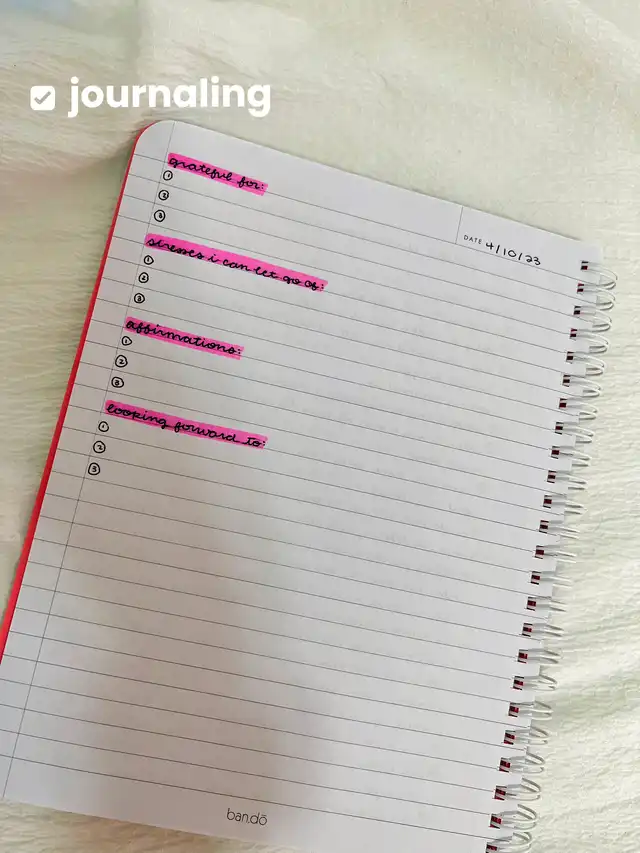 journaling
DATE 4/10/23
grateful for:
1
2
3
stresses i can let go of:
1
2
3
affirmations:
1
2
3
looking forward to:
1
2
3
ban.dō